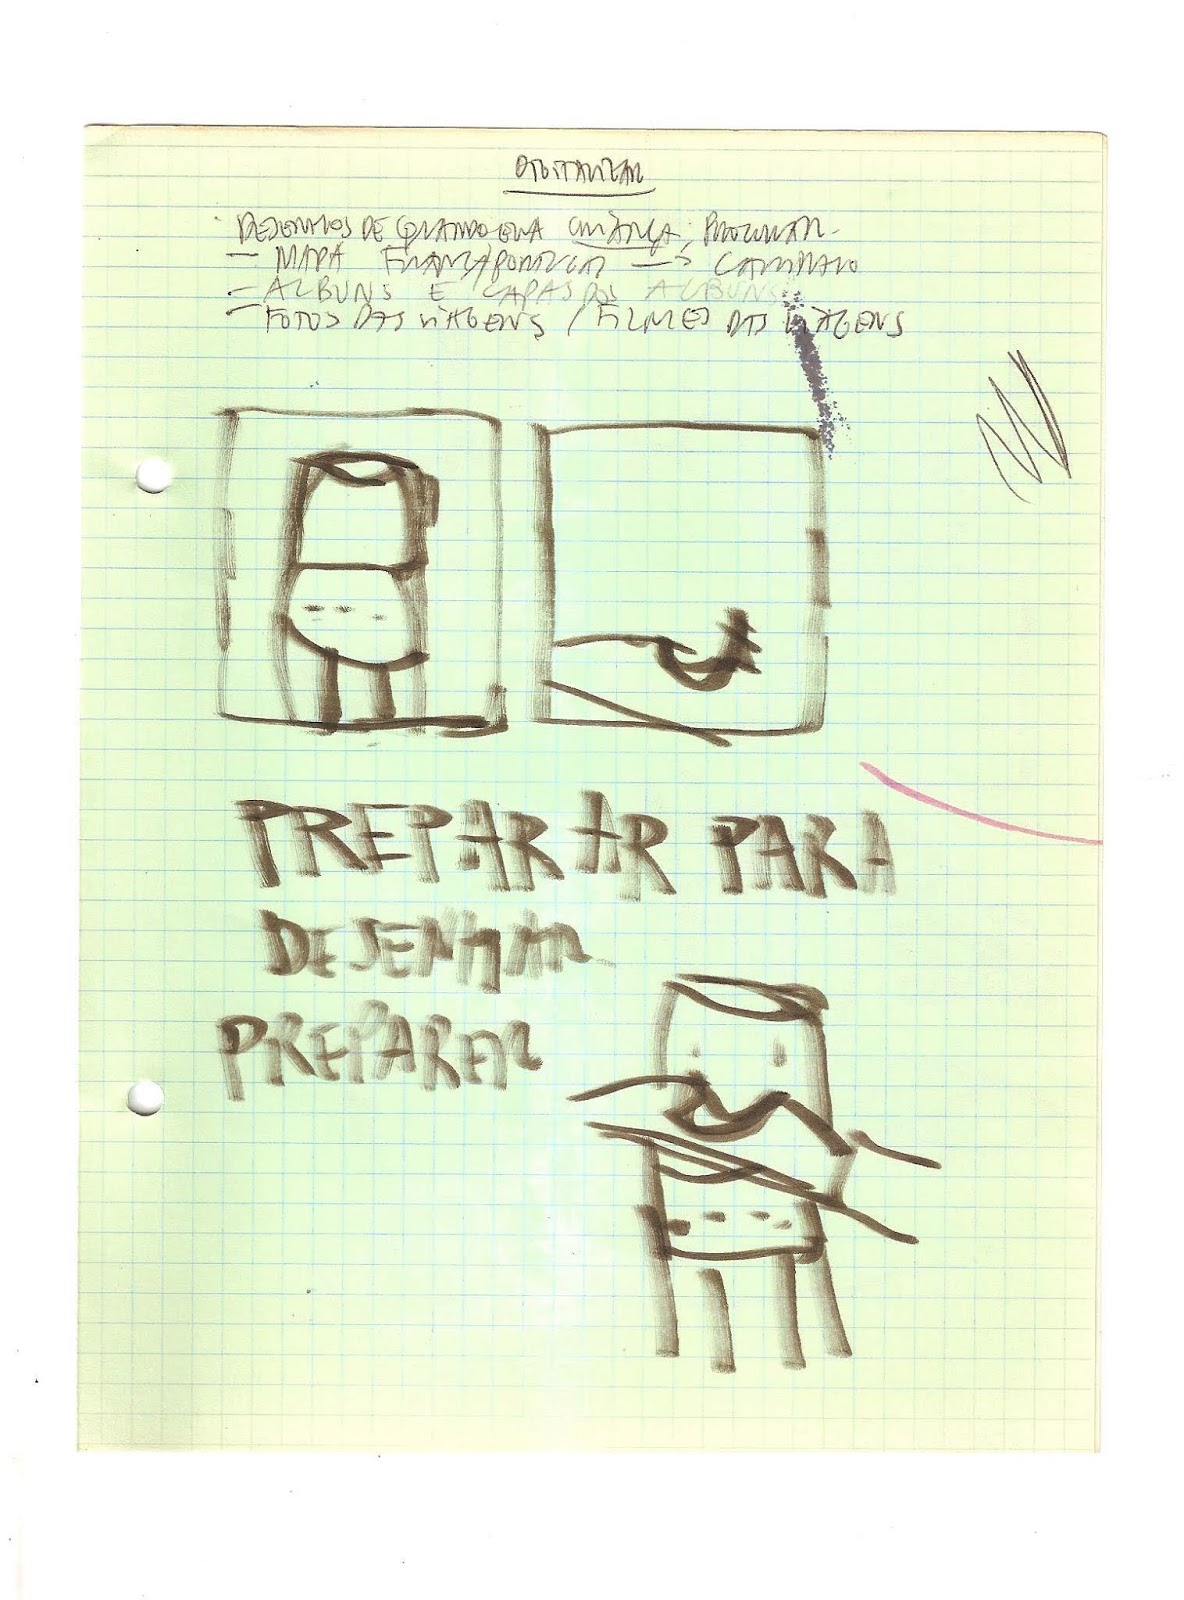 DIGITALIZAR
DESENHOS DE QUANDO ERA CRIANÇA, PROCURAR.
– MAPA FRANÇA/PORTUGAL → CAMINHO
– ALBUNS E CAPAS DOS ALBUNS
– FOTOS DAS VIAGENS / FILMES DAS VIAGENS
PREPARAR PARA
DESENHAR
PREPARER